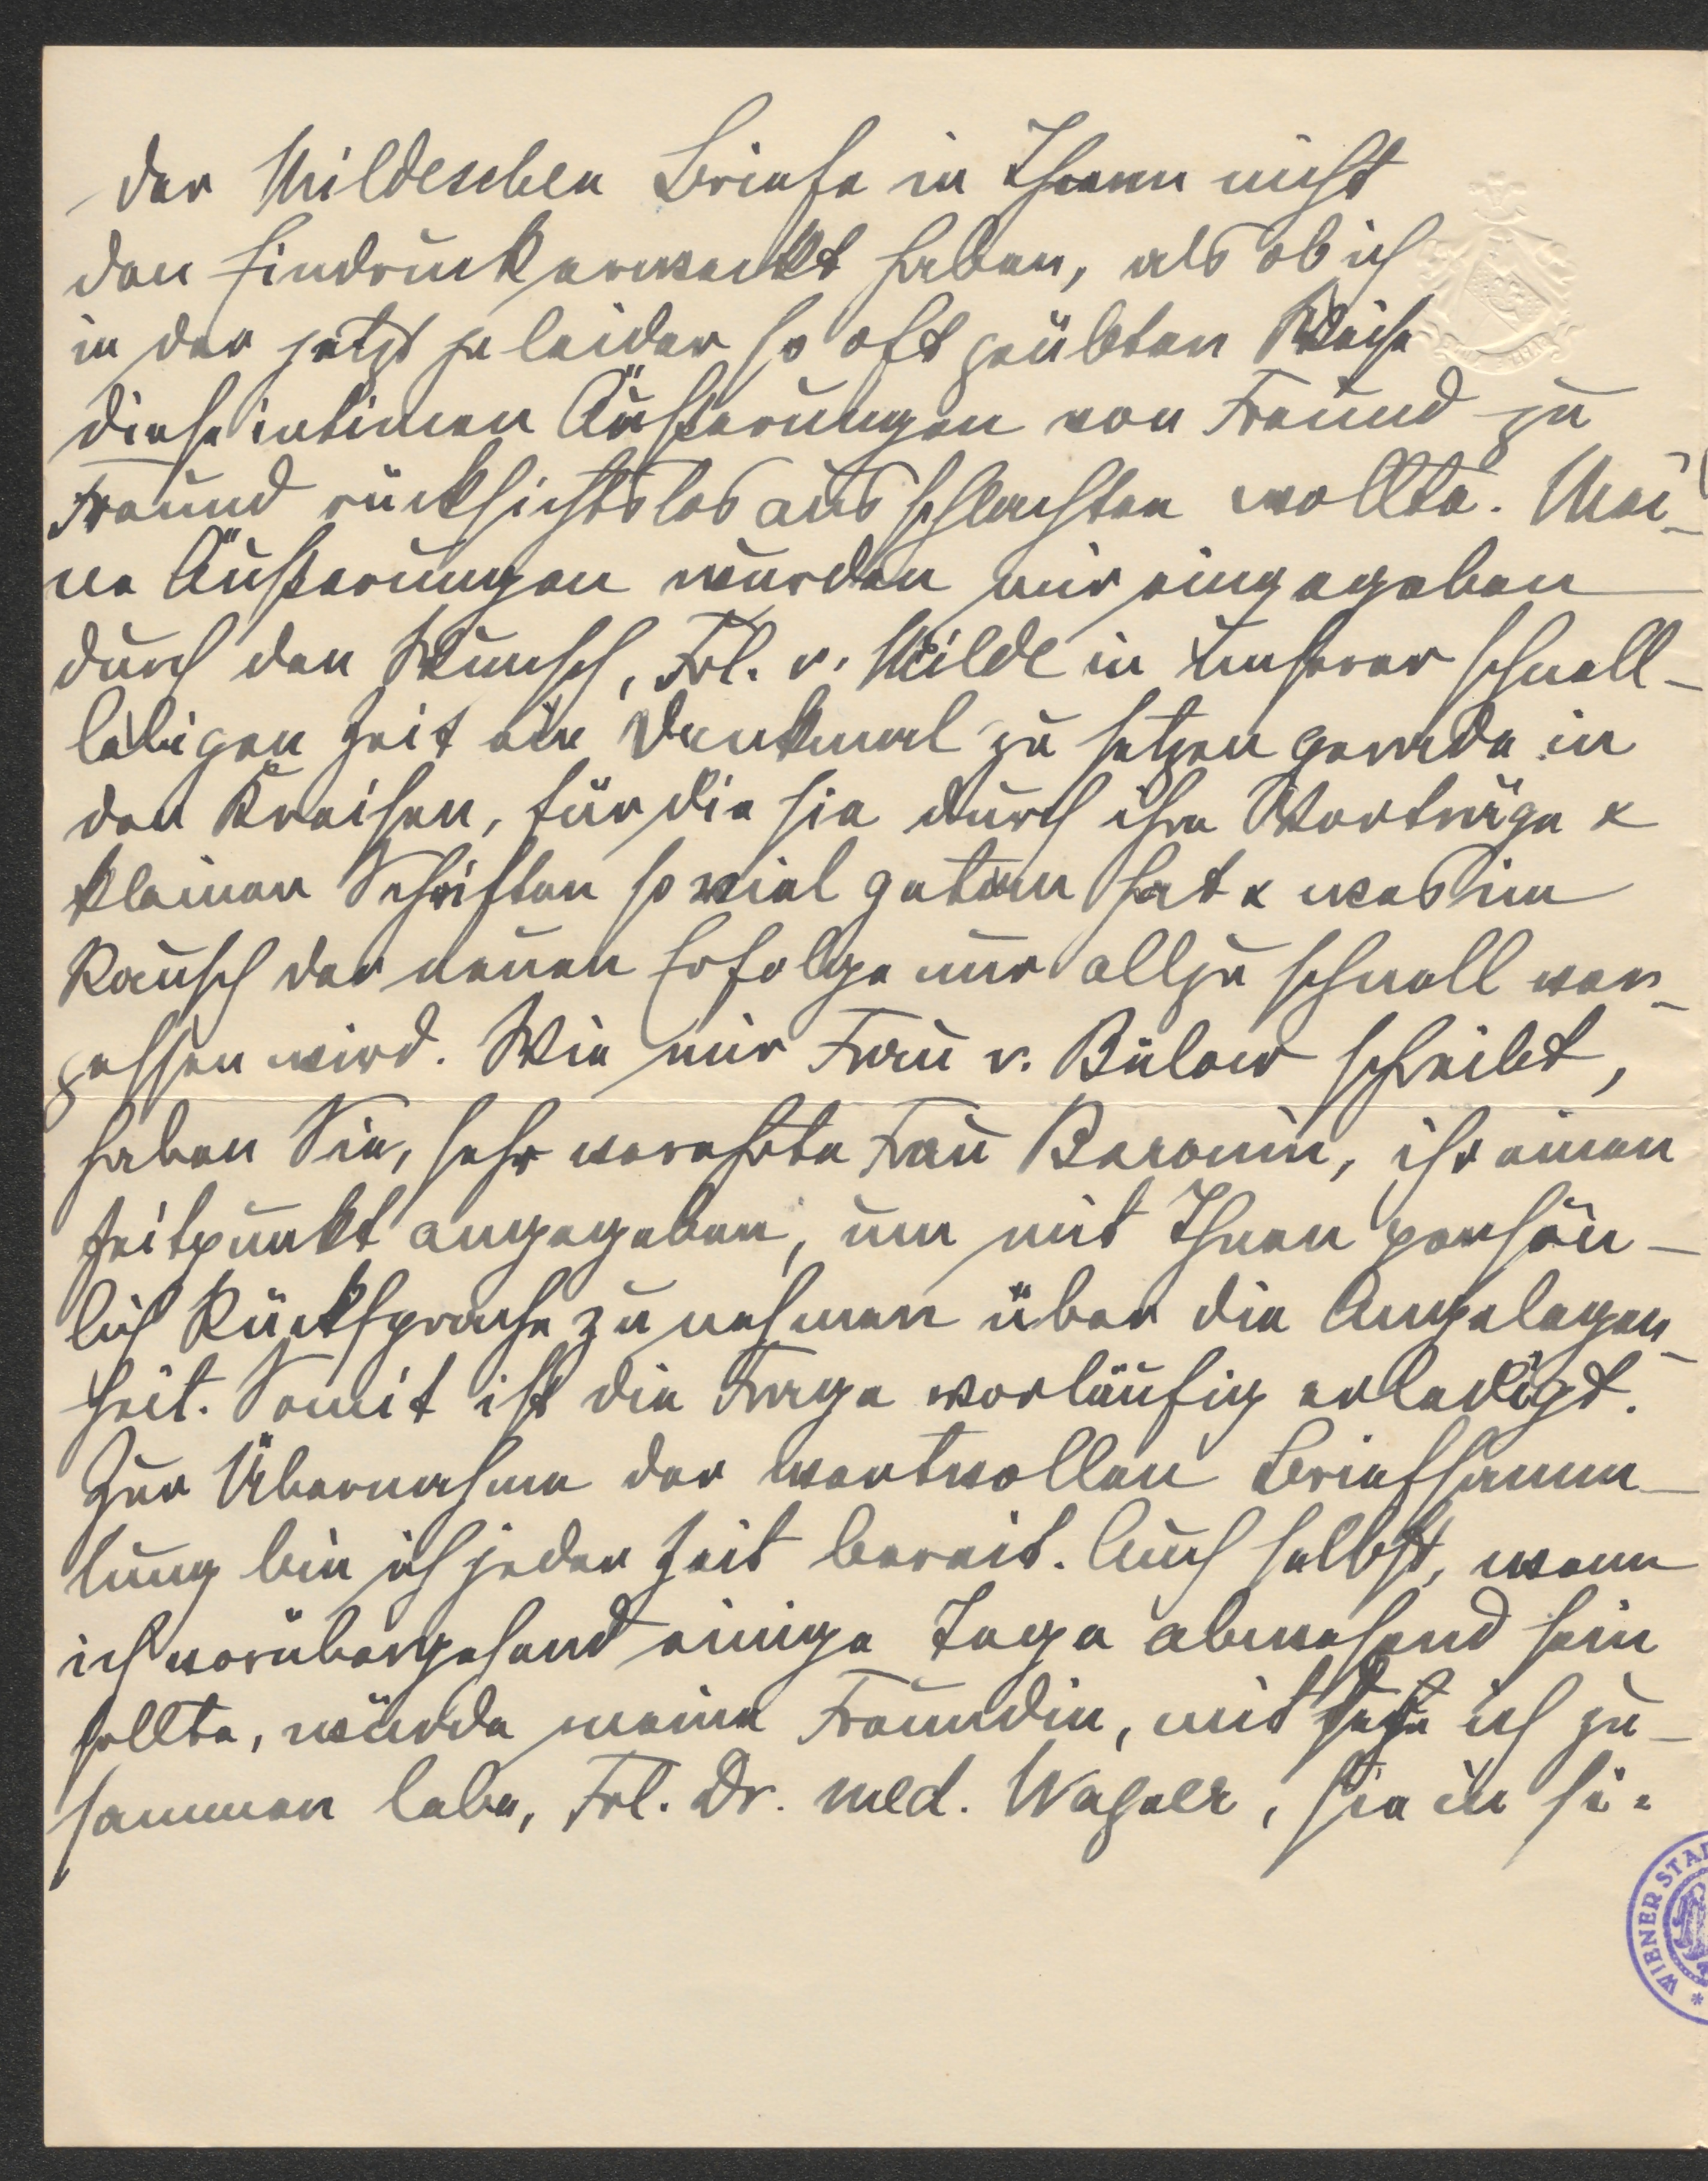 der Mildeschen Briefe in Ihnen nicht
den Eindruck erweckt haben, als ob ich
in der jetzt ja leider so oft geübten Weise
diese intimen Äußerungen von Freund zu
Freund rücksichtslos ausschlachten wollte. Mei-
ne Äußerungen wurden mir eingegeben
durch den Wunsch, Frl. v. Milde in unserer schnell-
lebigen Zeit ein Denkmal zu setzen gerade in
den Kreisen, für die sie durch ihre Vorträge &
kleinen Schriften so viel getan hat & was im
Rausch der neuen Erfolge nur allzu schnell ver-
gessen wird. Wie mir Frau v. Bülow schreibt,
haben Sie, sehr verehrte Frau Baronin, ihr einen
Zeitpunkt angegeben, um mit Ihnen persön-
lich Rücksprache zu nehmen über die Angelegen-
heit. Somit ist die Frage vorläufig erledigt.
Zur Übernahme der wertvollen Briefsamm-
lung bin ich jeder Zeit bereit. Auch selbst, wenn
ich vorübergehend einige Tage abwesend sein
sollte, würde meine Freundin, mit ich zu-
sammen lebe, Frl. Dr. med. , sie in si-
WIENER STA